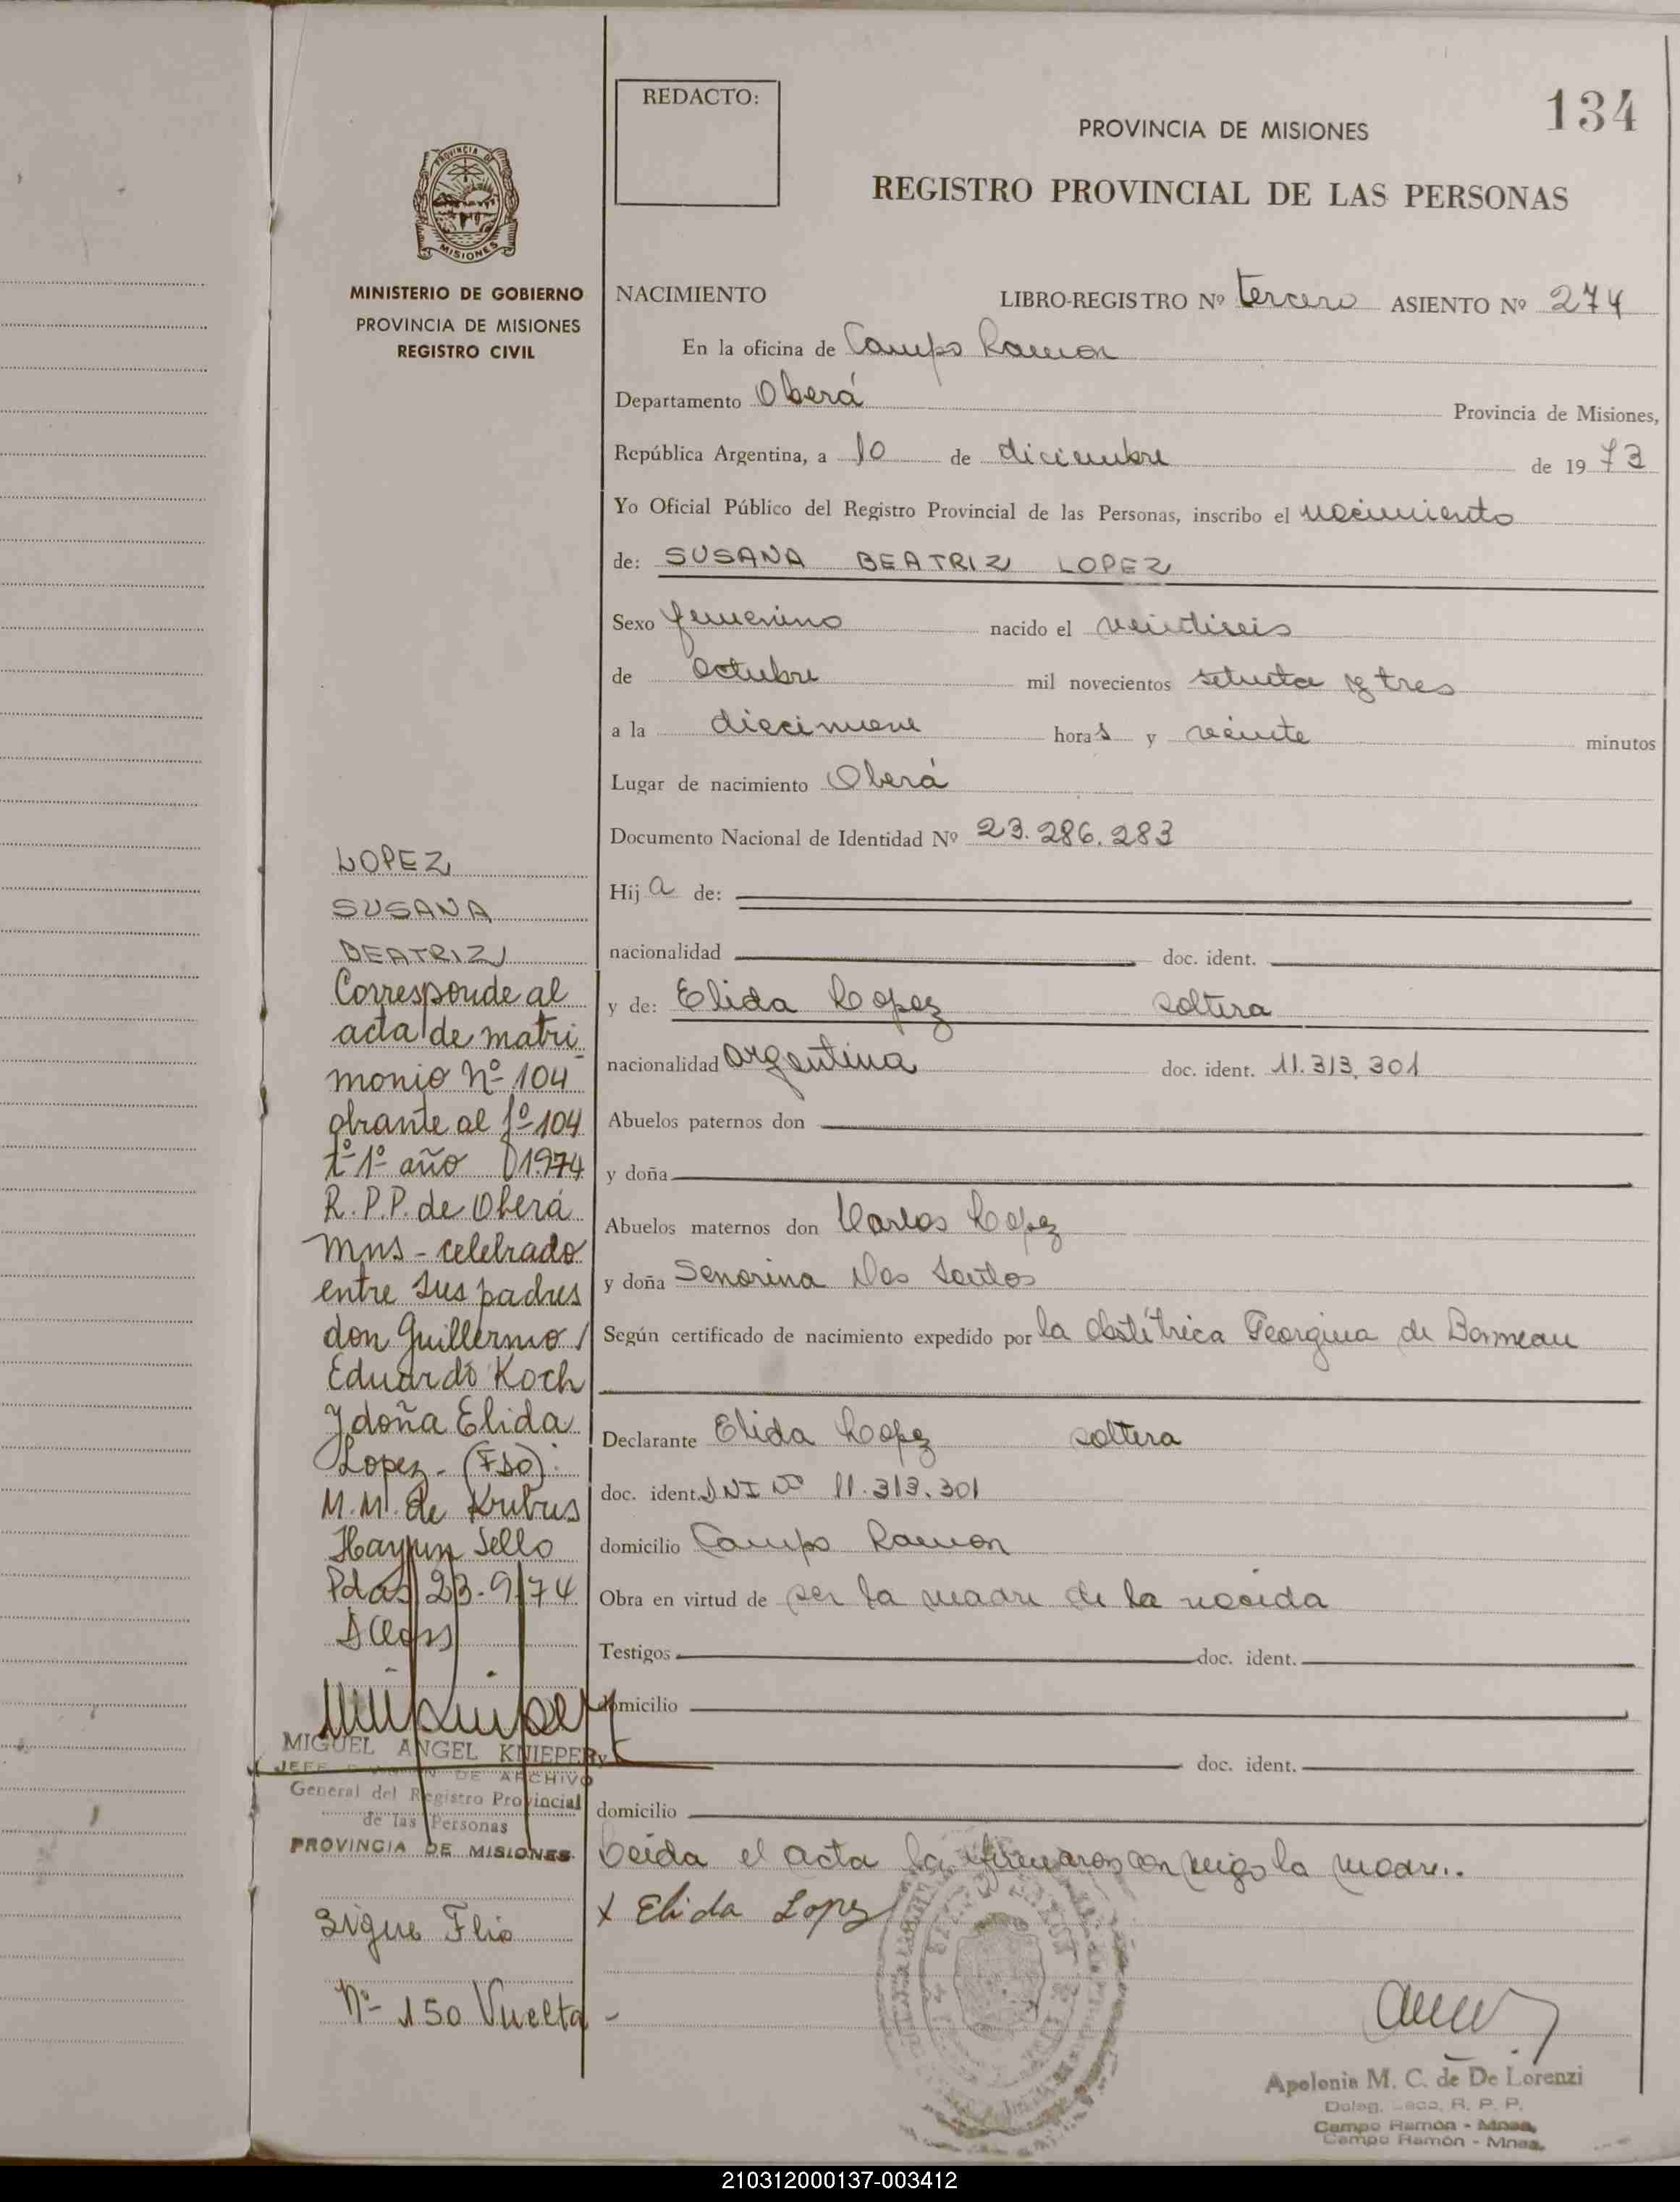 REDACTO:
134
PROVINCIA DE MISIONES
REGISTRO PROVINCIAL DE LAS PERSONAS
PROVINCIA DE
MISIONES
MINISTERIO DE GOBIERNO
PROVINCIA DE MISIONES
REGISTRO CIVIL
NACIMIENTO LIBRO-REGISTRO Nº tercero ASIENTO Nº 274
En la oficina de Campo Ramon
Departamento Oberá Provincia de Misiones,
República Argentina, a 10 de diciembre de 1973
Yo Oficial Público del Registro Provincial de las Personas, inscribo el nacimiento
de: SUSANA BEATRIZ LOPEZ
Sexo femenino nacido el veintiseis
de octubre mil novecientos setenta y tres
a la diecinueve horas y veinte minutos
Lugar de nacimiento Oberá
Documento Nacional de Identidad Nº 23.286.283
Hija de:
nacionalidad doc. ident.
y de: Elida Lopez soltera
nacionalidad argentina doc. ident. 11.313.301
Abuelos paternos don
y doña
Abuelos maternos don Carlos Lopez
y doña Senorina Dos Santos
Según certificado de nacimiento expedido por la obstétrica Georgina de
Declarante Elida Lopez soltera
doc. ident. DNI Nº 11.313.301
domicilio Campo Ramon
Obra en virtud de ser la madre de la nacida
Testigos doc. ident.
domicilio
y doc. ident.
domicilio
Leida el acta la firmaron conmigo la madre..
x Elida Lopez
Apolonia M. C. de De Lorenzi
R. P. P.
Campo Ramón - Mnes.
Campo Ramón - Mnes.
LOPEZ
SUSANA
BEATRIZ
Corresponde al
acta de matri
monio Nº 104
obrante al fº 104
tº 1º año 1974
R.P.P. de Oberá
Mns - celebrado
entre sus padres
don Guillermo
Eduardo Koch
y doña Elida
Lopez - (FDO):
M.M. de
Hay un Sello
Pdas 23-9-74
MIGUEL ANGEL KNIEPERT
JEFE DE ARCHIVO
General del Registro Provincial
de las Personas
PROVINCIA DE MISIONES
Sigue Flio
Nº 150 Vuelta -
210312000137-003412